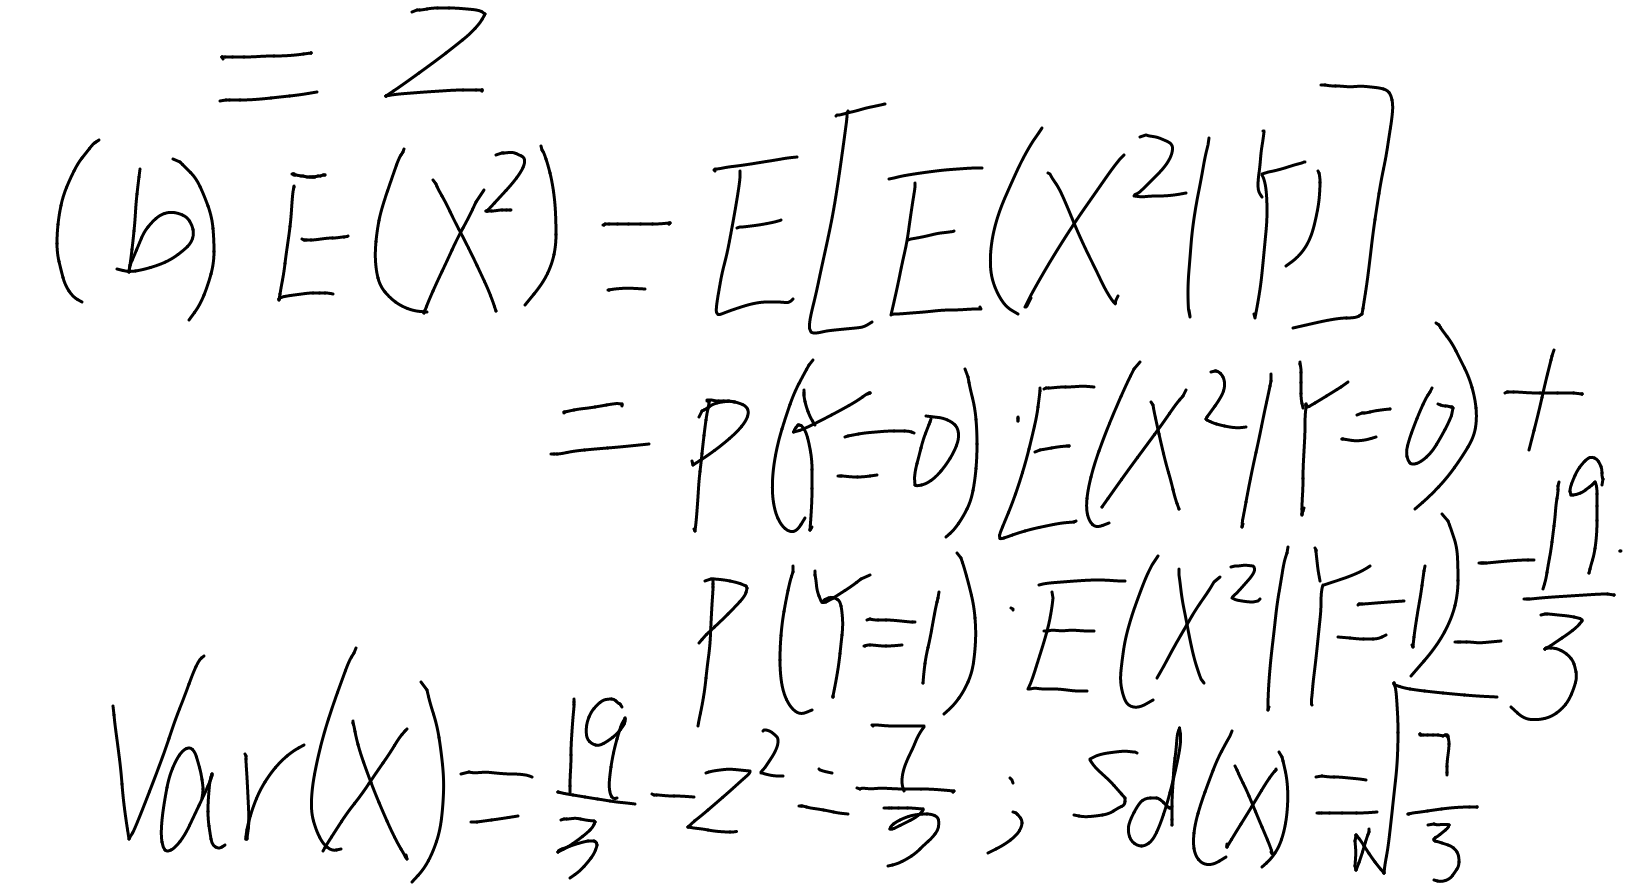 = 2
(b) E(X²) = E[E(X²|Y)]
= P(Y=0)·E(X²|Y=0) +
P(Y=1)·E(X²|Y=1) = 19/3
Var(X) = 19/3 - 2² = 7/3 ; Sd(X) = √(7/3)